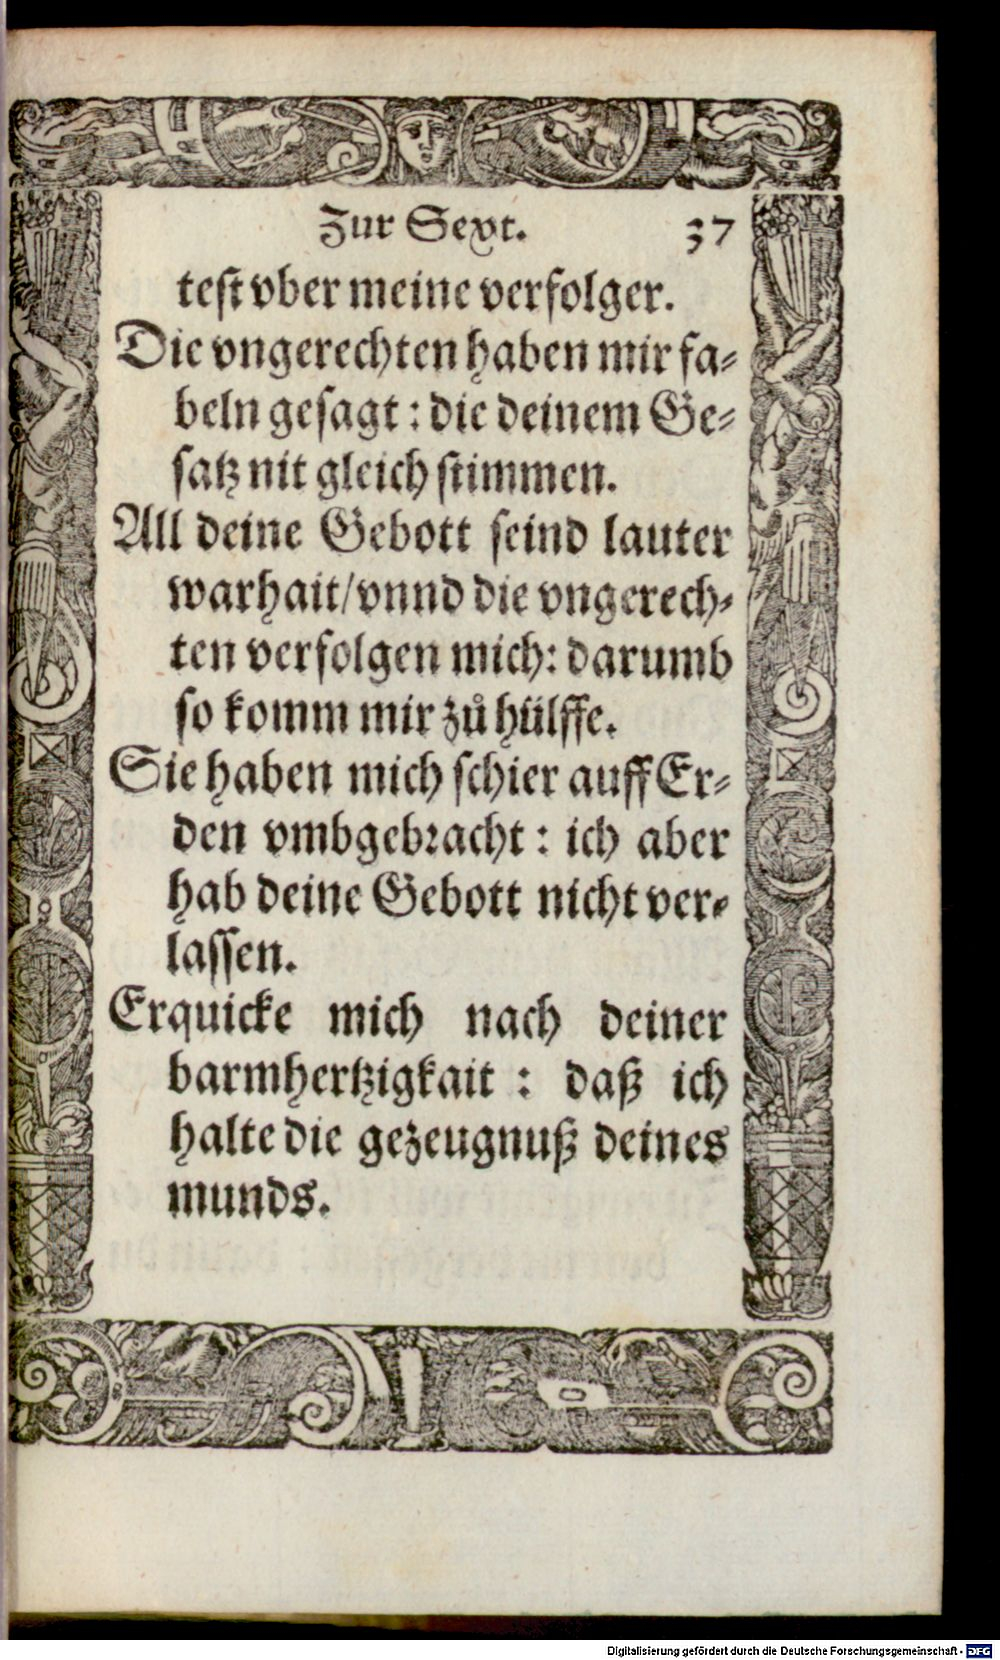 Zur Sext. 37
test vber meine verfolger.
Die vngerechten haben mir fa-
beln gesagt : die deinem Ge-
satz nit gleich stimmen.
All deine Gebott seind lauter
warhait/vnnd die vngerech-
ten verfolgen mich: darumb
so komm mir zů hülffe.
Sie haben mich schier auff Er-
den vmbgebracht : ich aber
hab deine Gebott nicht ver-
lassen.
Erquicke mich nach deiner
barmhertzigkait : daß ich
halte die gezeugnuß deines
munds.
Digitalisierung gefördert durch die Deutsche Forschungsgemeinschaft - DFG